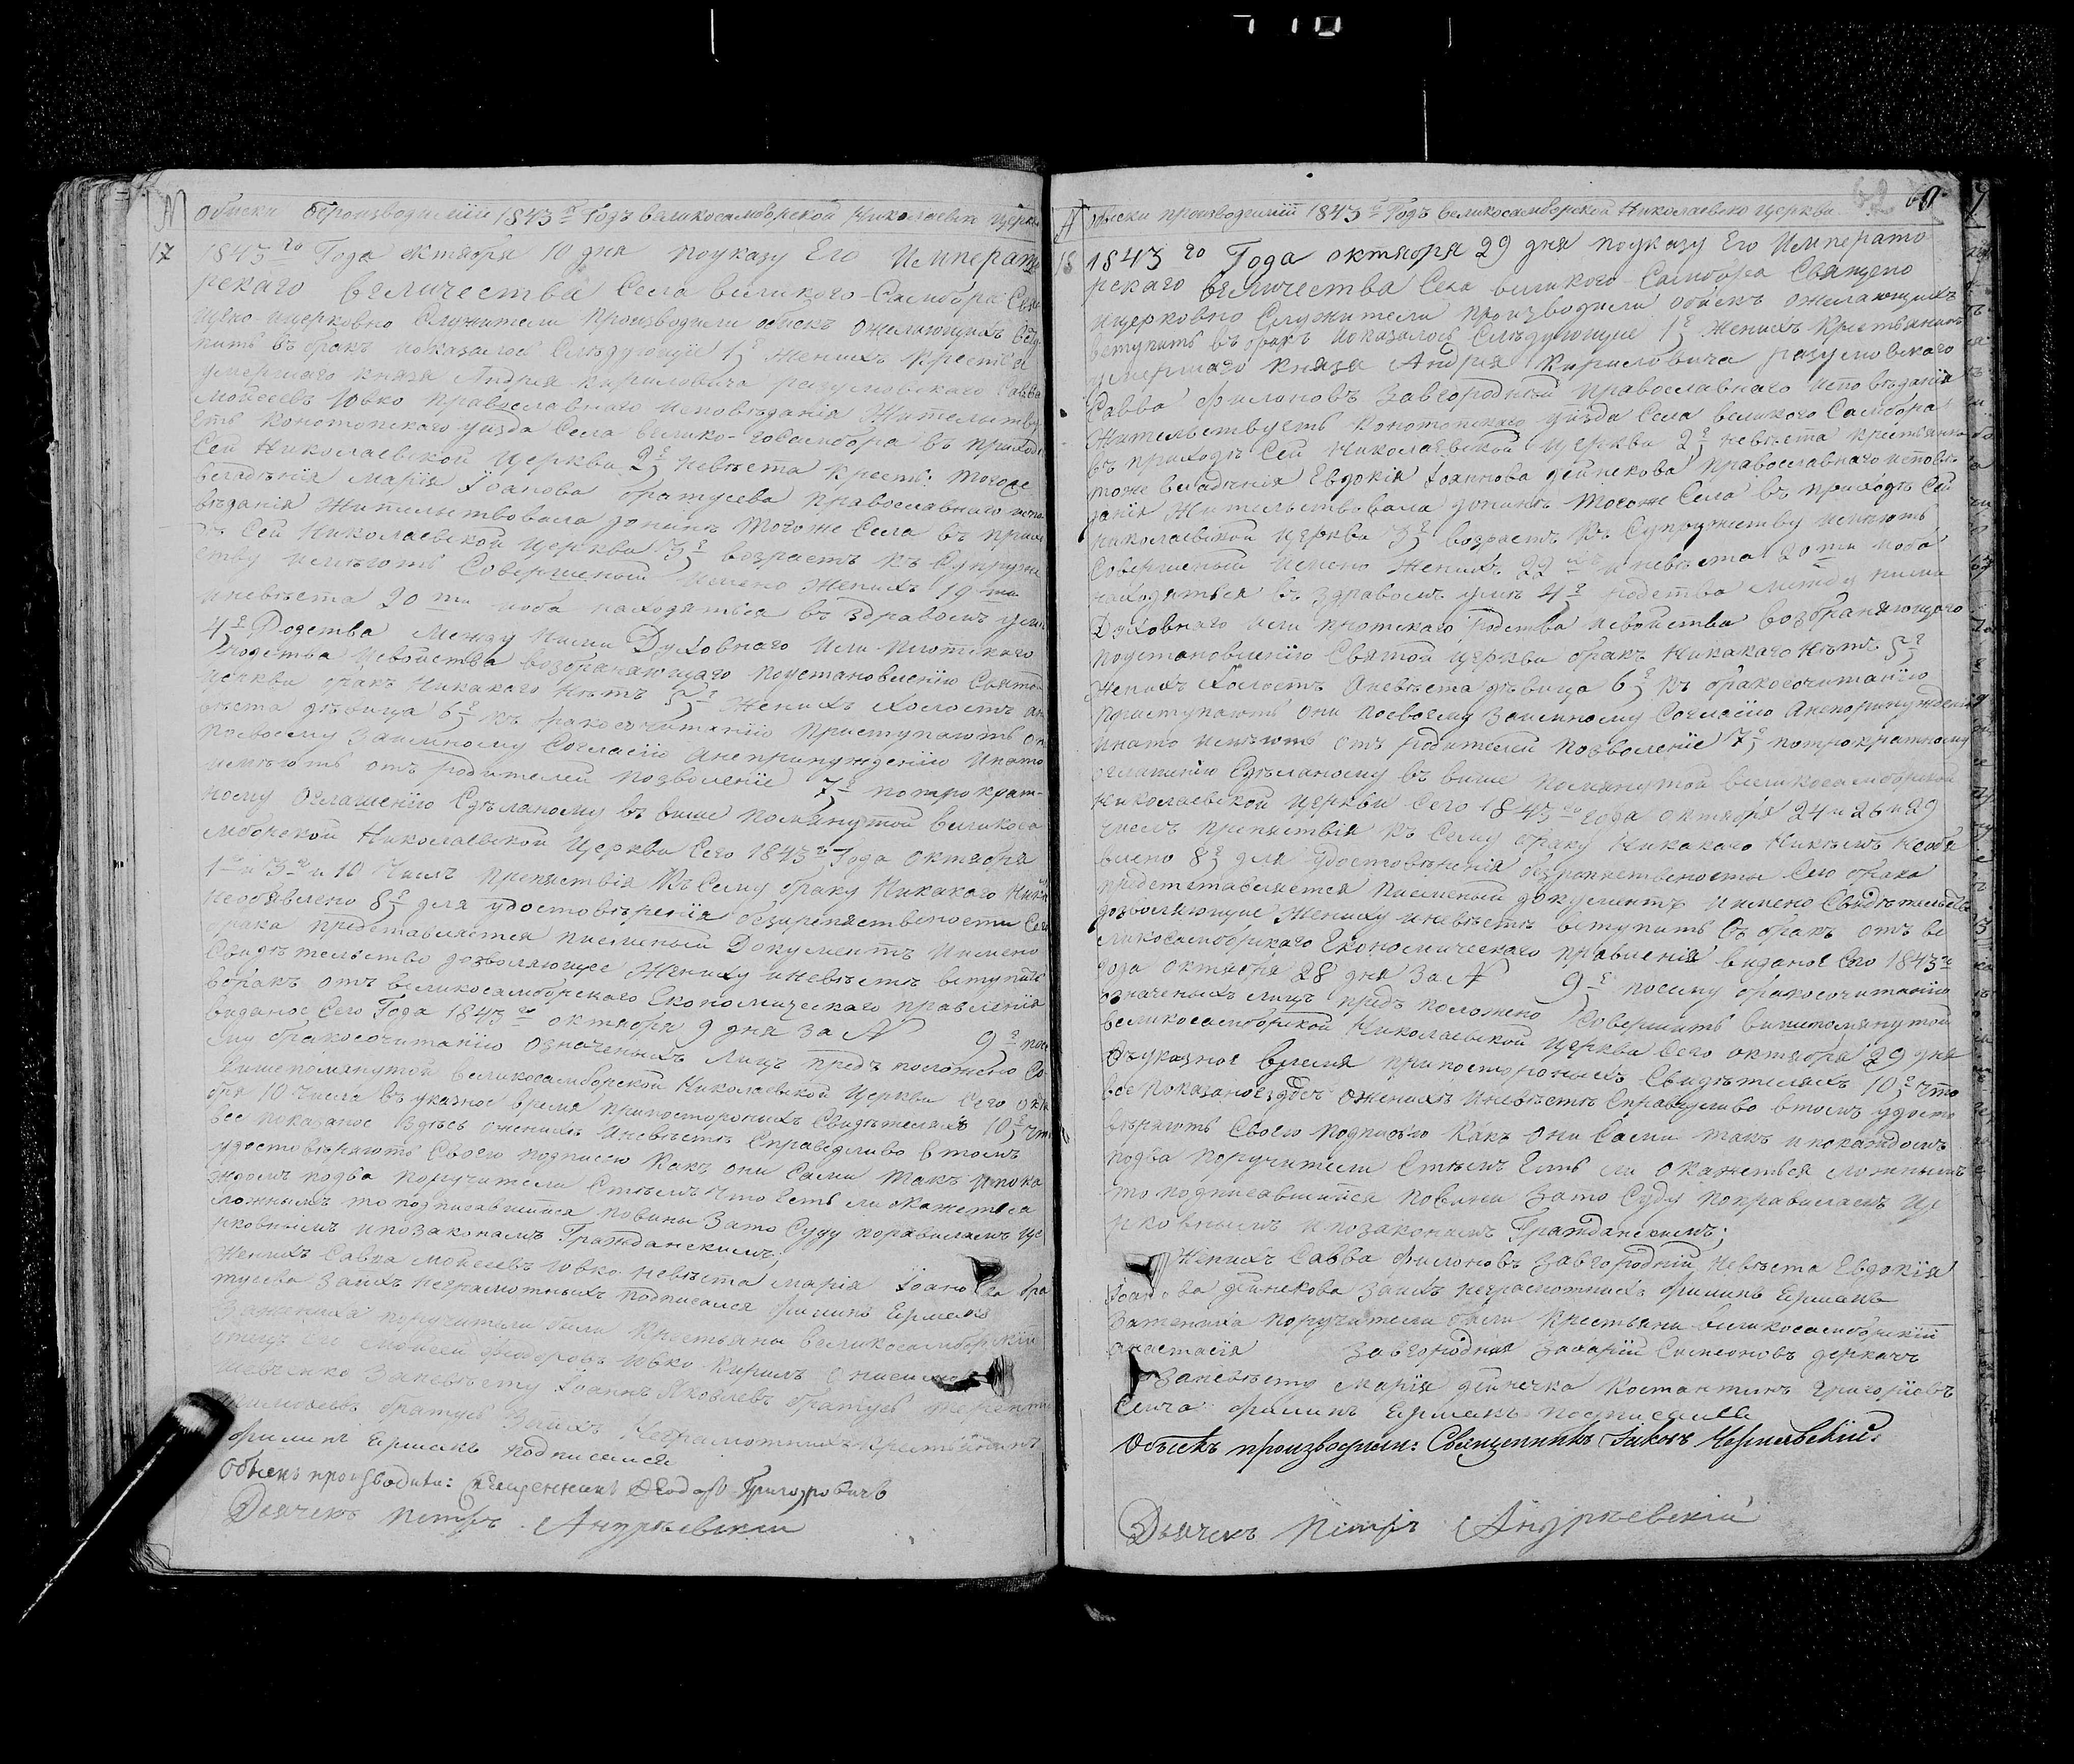 N обиски производимїй 1843 г Годъ великосамборской Николаевско церкв
17 1843 го Года октября 10 дня поуказу Его Императо
рскаго Величества Села великого-Самбора Свя
щено-ицерковно Служители производили обискъ ожелающихъ всту
пить въ бракъ показалось Следующїе 1е Женихъ крестья
умершаго князя Андрея Кириловича разумовскаго Савва
Мойсеевъ Ювко православнаго исповеданїя Жительству
етъ Конотопскаго уезда Села велико-го Самбора въ приходе
Сей Николаевской Церкви 2е невеста крестъ: тогоже
веладенїя Марїя Іоанова братусева Православнаго испо
веданїя Жительствовала донине тогоже Села въ прихо
Сей Николаевской церкви 3е возрастъ къ Супруже
ству имеютъ Совершеный имено Женихъ 19 ти
иневеста 20 ти иоба находяться въ здравомъ уме
4е Родства между ними Духовного или плотскаго
родства исвойства возбраняющаго поустановленїю Святой
церкви бракъ никакого нетъ 5е Женихъ холостъ ане
веста девица 6е къ бракосочитанїю приступаютъ он
посвоему заимному Согласїю анепринужденїю инато
имеютъ отъ родителей позволенїе 7е потрократ-
ному оглашенїю Сделаному въ више помянутой великоса
мборской Николаевской Церкви Сего 1843 г Года октября
1 и 3 и 10 Числъ препятствїя къ Сему браку Никакого Ник
необявлено 8е для удостоверенїя безпрепятствености Сего
брака предетавляется писменый Документъ Имено
Свидетельство дозволяющее Жениху иневесте вступить
вбракъ отъ великосамборскаго Економическаго правленїя
виданое Сего Года 1843 го октября 9 дня за N 9е посе
му бракосочитанїю означеныхъ лицъ предъ положено Со
вишепомянутой великосамборской Николаевской Церкви Сего Окт
бря 10 Числа въ указное время припостороннихъ Свидетеляхъ 10е что
все показаное Здесь ожених Иневесте Справедливо втомъ
удостоверяютъ Своею подписїю Какъ они Сами такъ ипока
ждомъ подва поручители Стемъ Что Есть ли окажеться
ложнымъ то подписавшийся повины Зато Суду поправиламъ Це
рковнымъ ипозаконамъ Гражданскимъ;
Женихъ Савва Мойсеевъ Ювко невеста марїя Іоано ва бра
тусева Заихъ неграмотныхъ подписался филипъ Ермакъ
Зажениха поручители били Крестьяны великосамборскїи
отецъ его Мойсей феодоровъ Ювко Кирилъ
Шевченко Заневесту Іоаннъ Яковлевъ братусь
братусь Заихъ Неграмотныхъ крестьянинъ
филипъ Ермакъ подписался
Обыскъ производили: Священникъ Феодоръ Григоровичъ
Дьячекъ Петръ Андреевский
N обиски производимїй 1843 г Годъ великосамборской Николаевско церкви 68
18 1843 го Года октября 29 дня поуказу Его Императо
рскаго Величества Села великого-Самбора Священо
ицерковно Служители производили обискъ ожелающихъ
вступить въ бракъ показалось Следующїе 1е Женихъ Крестьянинъ
умершаго Князя Андрея Кириловича разумовскаго
Савва Филоновъ Завгородный православнаго исповеданїя
Жительствуетъ Конотопского уезда Села великого Самбора
въ приходе Сей Николаевской Церкви 2е невеста крестьянка
тоже веладенїя Евдокїя Іоаннова дейнекова Православнаго испове
данїя Жительствовала донине тогоже Села въ приходе Сей
николаевской церкви 3е возрастъ къ Супружеству имеютъ
Совершеный имено Женихъ 22 иневеста 20 ти иоба
находяться въ здравомъ уме 4е родства между ними
Духовнаго или плотскаго родства исвойства возбраняющаго
поустановленїю Святой церкви бракъ Никакого нетъ 5е
Женихъ Холостъ аневеста девица 6е къ бракосочитанїю
приступаютъ они посвоему заимному Согласїю анепринужденїю
инато имеютъ отъ родителей позволенїе 7е потрократному
оглашенїю Сделаному въ више помянутой великосамборской
николаевской Церкви Сего 1843 го года октября 24 и 26 и 29
числъ препятствїя къ Сему браку Никакого Никемъ необя
влено 8е для удостоверенїя безпрепятствености Сего брака
предетставляется писменый документъ имено Свидетельство
дозволяющие Жениху иневесте вступить въ бракъ отъ ве
ликосамборскаго Економическаго правленїя виданое Сего 1843 го
года октября 28 дня За N 9е посему бракосочитанїю
означеныхъ лицъ предъ положено Совершить вишепомянутой
великосамборской Николаевской церкви Сего октября 29 дня
въуказное время припостороныхъ Свидетеляхъ 10е что
все показаное здесь ожених иневесте Справедливо втомъ удосто
веряютъ Своею подписїю Какъ они Сами такъ ипокаждомъ
подва поручители Стемъ Есть ли окажеться ложнымъ
то подписавшийся повины Зато Суду поправиламъ Це
рковнымъ ипозаконамъ Гражданскимъ;
Женихъ Савва филоновъ Завгородний Невеста Евдокїя
Іоано ва дейнекова Заихъ неграмотныхъ филипъ Ермакъ
Зажениха поручители били Крестьяны великосамборскїй
анастасїя Завгородняя Захарїй Симеоновъ деркачъ
Заневесту марїя дейнечка Костантинъ Григорїевъ
филипъ Ермакъ подписался
Обыскъ производили: Священникъ Іаковъ Чернявскїй:
Дьячекъ Петръ Андреевскїй